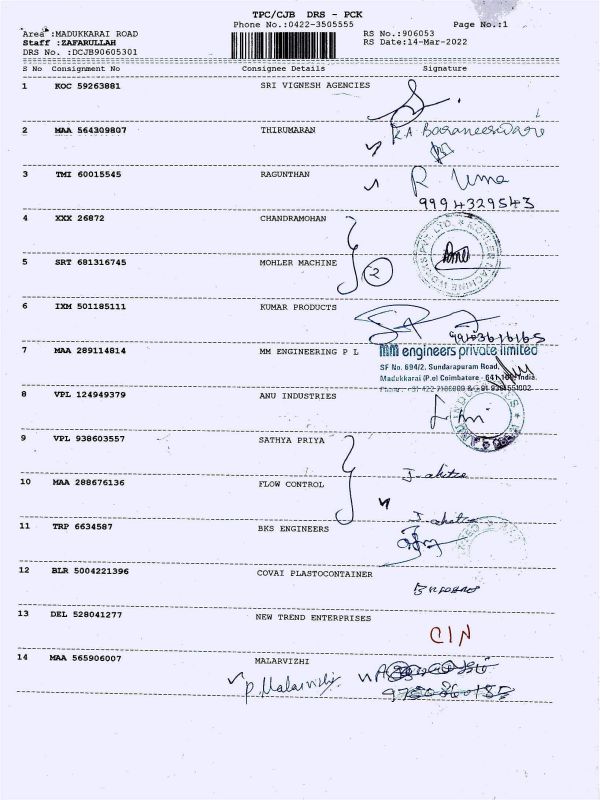 TPC/CJB DRS - PCK
Phone No.:0422-3505555 Page No.:1
Area :MADUKKARAI ROAD RS No.:906053
Staff :ZAFARULLAH RS Date:14-Mar-2022
DRS No. :DCJB90605301
S No Consignment No Consignee Details Signature
1 KOC 59263881 SRI VIGNESH AGENCIES
2 MAA 564309807 THIRUMARAN K.A. Baraneeswari
3 TMI 60015545 RAGUNTHAN R. Uma
9994329543
4 XXX 26872 CHANDRAMOHAN
5 SRT 681316745 MOHLER MACHINE 2
6 IXM 501185111 KUMAR PRODUCTS
7 MAA 289114814 MM ENGINEERING P L MM engineers private limited
SF No. 694/2, Sundarapuram Road,
Madukkarai (P.o) Coimbatore - 641 105 India.
8 VPL 124949379 ANU INDUSTRIES
9 VPL 938603557 SATHYA PRIYA
10 MAA 288676136 FLOW CONTROL
11 TRP 6634587 BKS ENGINEERS
12 BLR 5004221396 COVAI PLASTOCONTAINER
13 DEL 528041277 NEW TREND ENTERPRISES
CIN
14 MAA 565906007 MALARVIZHI
P. Malarvizhi